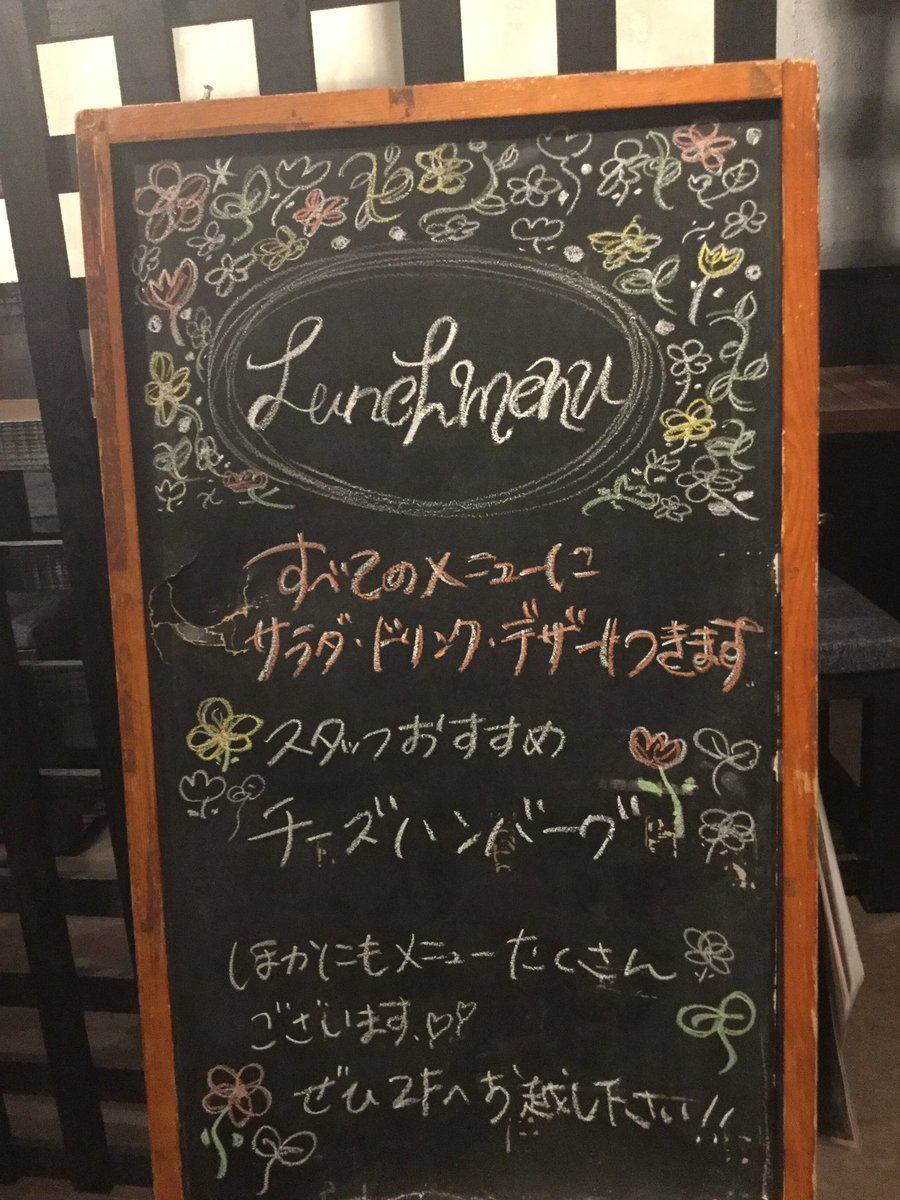 Lunch menu
すべてのメニューに
サラダ・ドリンク・デザートつきます
スタッフおすすめ
チーズハンバーグ
ほかにもメニューたくさん
ございます、♡♡
ぜひ2Fへお越し下さい!!